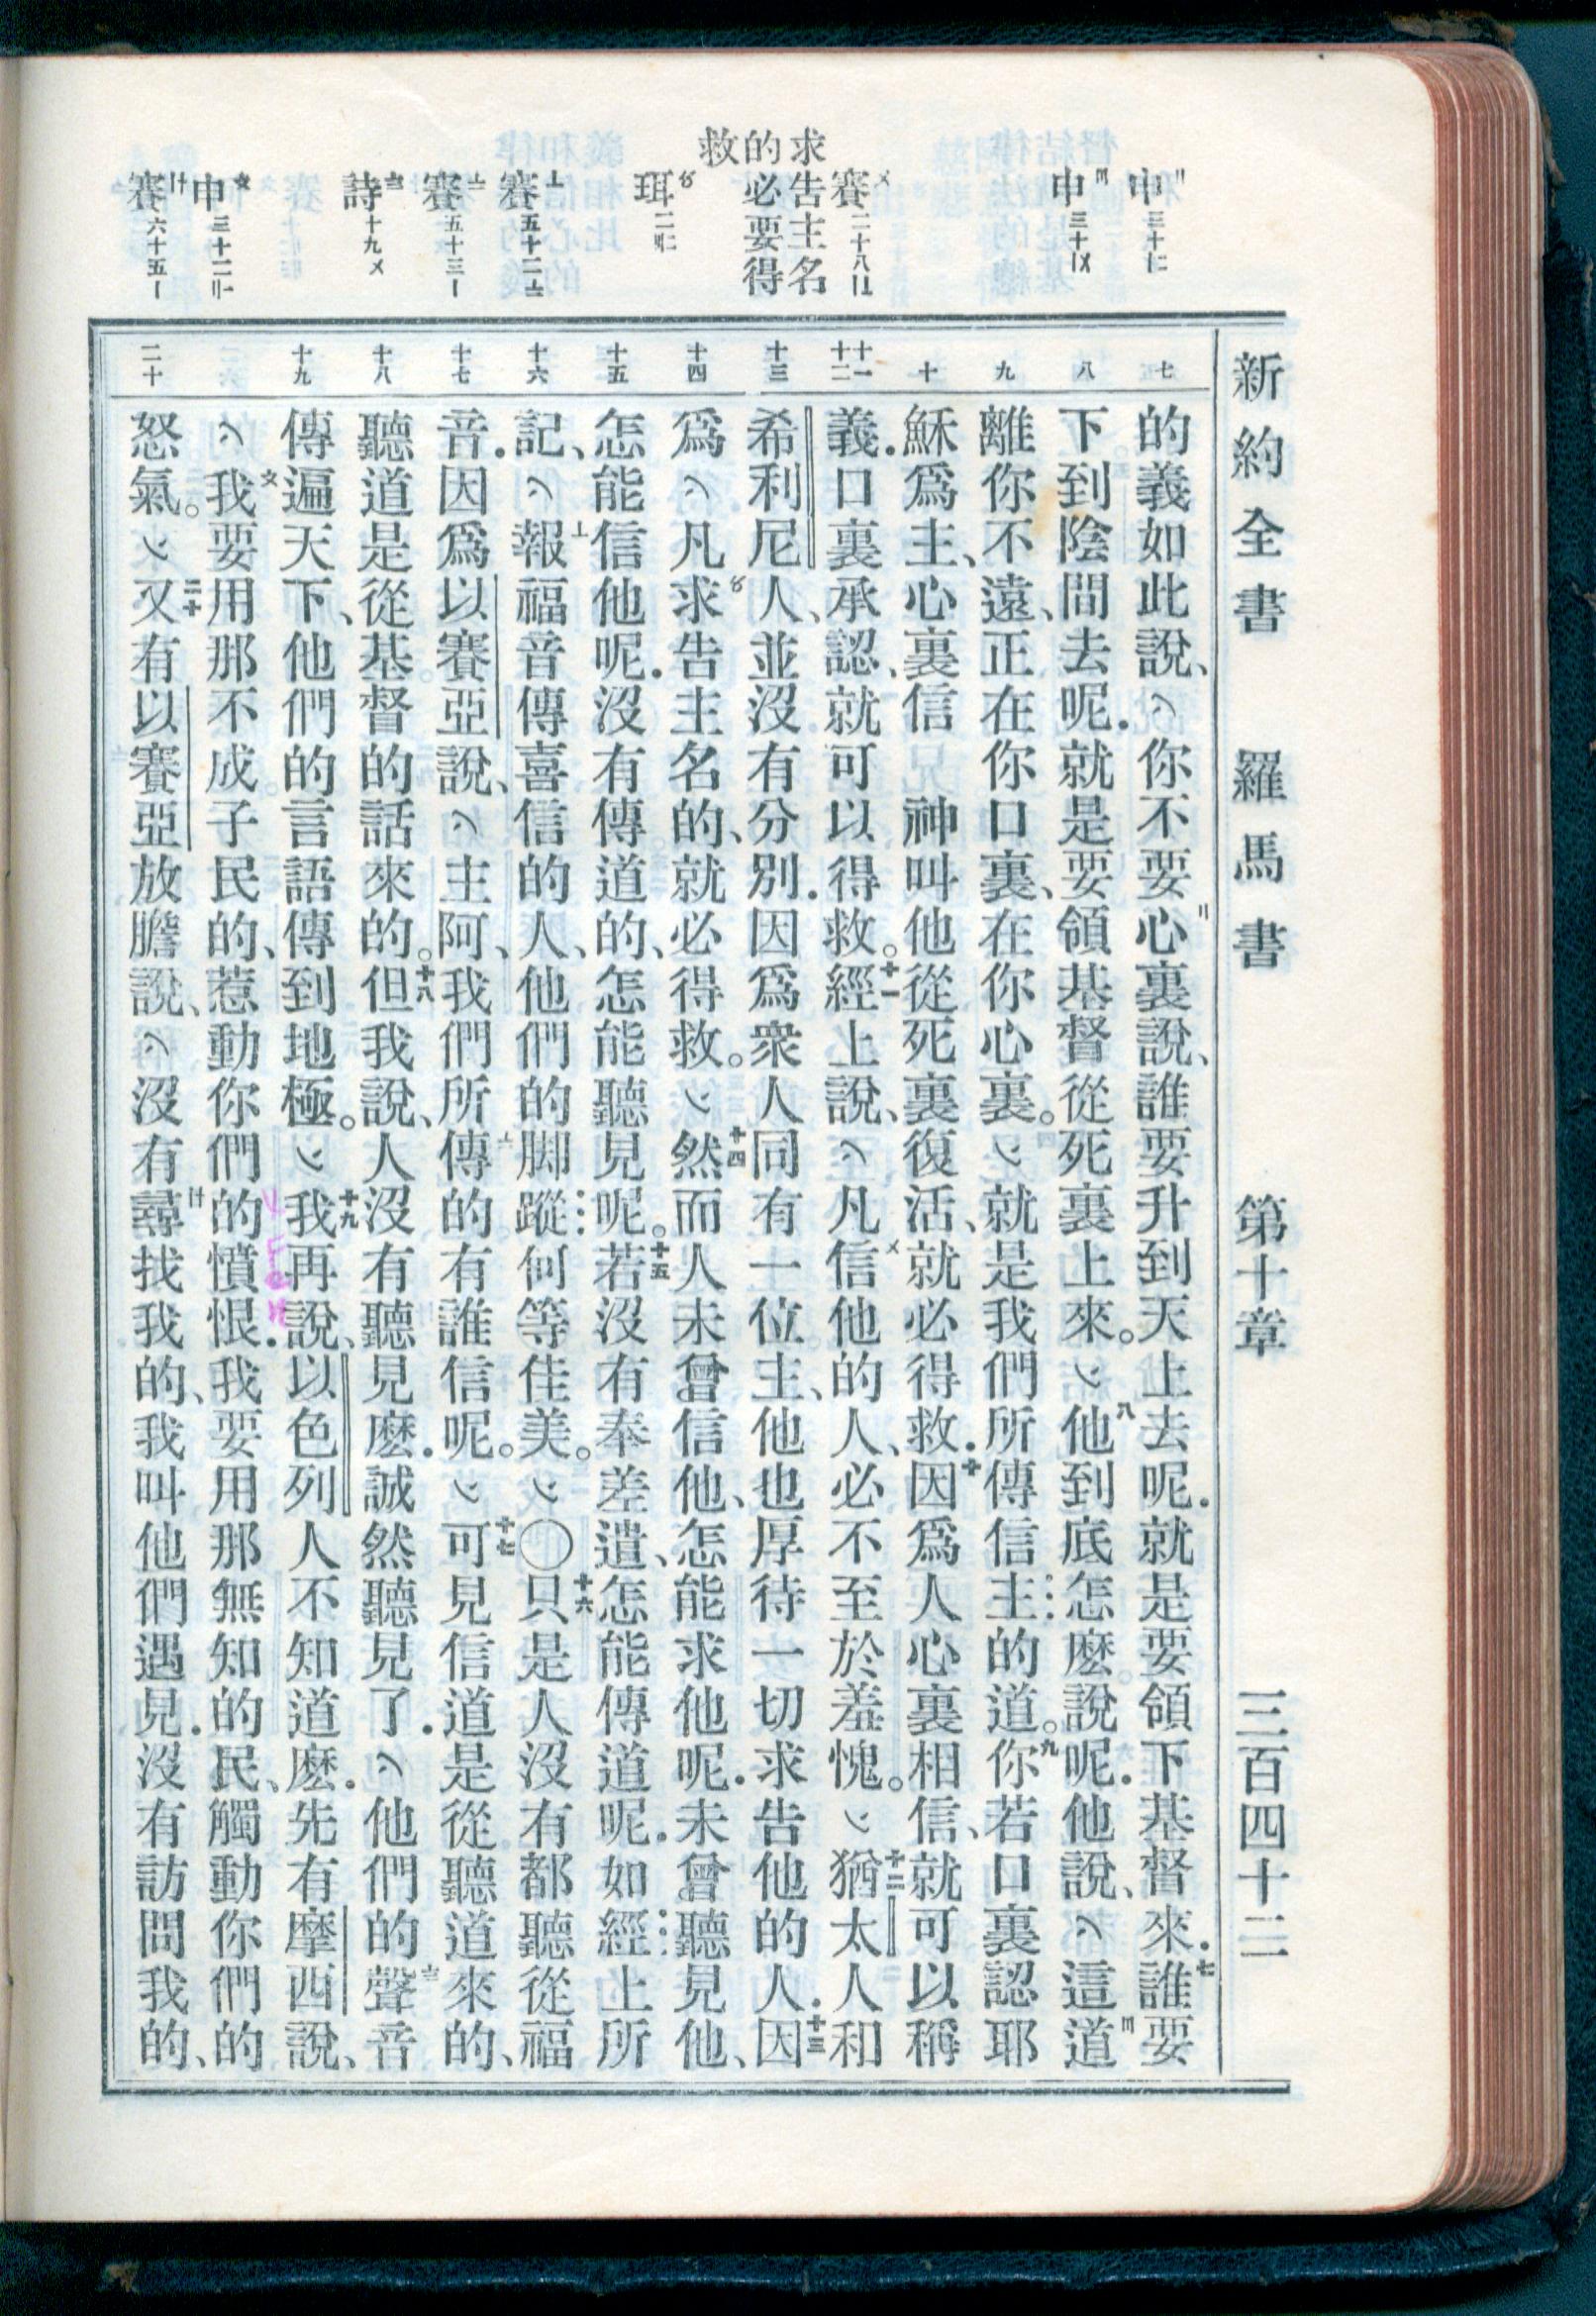 新約全書 羅馬書 第十章 三百四十二
申三十〡二
申三十〡乂
賽二十八〡〦
求告主名
的必要得
救
珥二〣二
賽五十二〧
賽五十三〡
詩十九乂
申三十二〢〡
賽六十五〡
七
八
九
十
十一
十二
十三
十四
十五
十六
十七
十八
十九
二十
的義如此說、﹁你不要心裏說、誰要升到天上去呢．就是要領下基督來．七誰要
下到陰間去呢．就是要領基督從死裏上來。﹂八他到底怎麽說呢．他說、﹁這道
離你不遠、正在你口裏、在你心裏。﹂就是我們所傳信主的道。九你若口裏認耶
穌爲主、心裏信 神叫他從死裏復活、就必得救．十因爲人心裏相信、就可以稱
義．口裏承認、就可以得救。十一經上說、﹁凡信他的人、必不至於羞愧。﹂十二猶太人和
希利尼人、並沒有分別．因爲衆人同有一位主、他也厚待一切求告他的人．十三因
爲﹁凡求告主名的、就必得救。﹂十四然而人未曾信他、怎能求他呢．未曾聽見他、
怎能信他呢．沒有傳道的、怎能聽見呢。十五若沒有奉差遣、怎能傳道呢．如經上所
記、﹁報福音傳喜信的人、他們的脚蹤何等佳美。﹂〇十六只是人沒有都聽從福
音．因爲以賽亞說、﹁主阿、我們所傳的有誰信呢。﹂十七可見信道是從聽道來的、
聽道是從基督的話來的。十八但我說、人沒有聽見麽．誠然聽見了．﹁他們的聲音
傳遍天下、他們的言語傳到地極。﹂十九我再說、以色列人不知道麽．先有摩西說、
﹁我要用那不成子民的、惹動你們的憤恨．我要用那無知的民、觸動你們的
怒氣。﹂二十又有以賽亞放膽說、﹁沒有尋找我的、我叫他們遇見．沒有訪問我的、